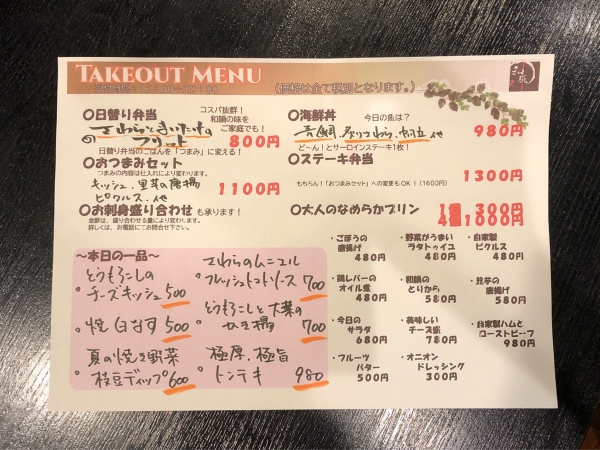 TAKEOUT MENU
(価格は全て税別となります。)
〇日替り弁当
コスパ抜群！
和鍋の味を
ご家庭でも！
さわらとまいたけの
フリット
800円
日替り弁当のごはんを「つまみ」に変える！
〇おつまみセット
つまみの内容は仕入れにより変わります。
キッシュ、里芋の唐揚
ピクルス、他
1100円
〇お刺身盛り合わせ も承ります！
金額は、盛り合わせる量により変わります。
詳しくは、お電話にてお問合せ下さい。
〇海鮮丼
今日の魚は？
真鯛、炙りさわら、帆立、他
980円
ど～ん！とサーロインステーキ1枚！
〇ステーキ弁当
1300円
もちろん！「おつまみセット」への変更もOK！(1600円)
〇大人のなめらかプリン
1個 300円
4個1,000円
～本日の一品～
とうもろこしの
チーズキッシュ 500
焼白なす 500
夏の焼き野菜
枝豆ディップ 600
さわらのムニエル
フレッシュトマトソース 700
とうもろこしと大葉の
かき揚 700
極厚、極旨
トンテキ 980
・ごぼうの
唐揚げ
480円
・野菜がうまい
ラタトゥイユ
480円
・自家製
ピクルス
480円
・鶏レバーの
オイル煮
480円
・和鍋の
とりから
580円
・里芋の
唐揚げ
580円
・今日の
サラダ
680円
・美味しい
チーズ煮
780円
・自家製ハムと
ローストビーフ
980円
・フルーツ
バター
500円
・オニオン
ドレッシング
300円